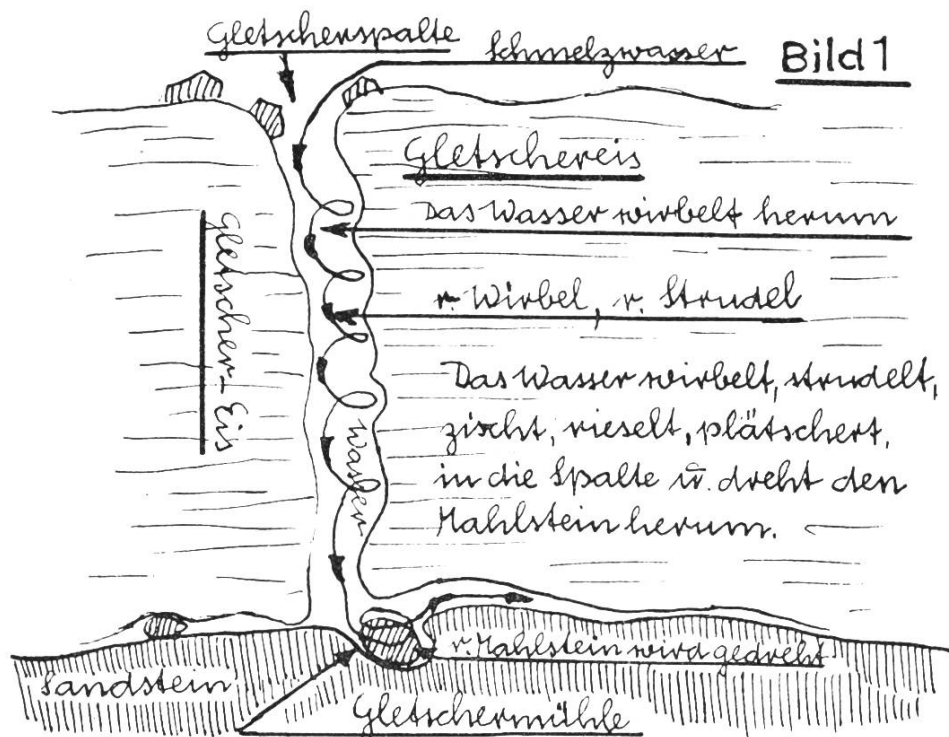 Gletscherspalte
Schmelzwasser
Bild 1
Gletschereis
Das Wasser wirbelt herum
Gletscher-Eis
r. Wirbel, r. Strudel
Das Wasser wirbelt, strudelt,
zischt, rieselt, plätschert,
in die Spalte u. dreht den
Mahlstein herum.
Wasser
r. Mahlstein wird gedreht
Sandstein
Gletschermühle